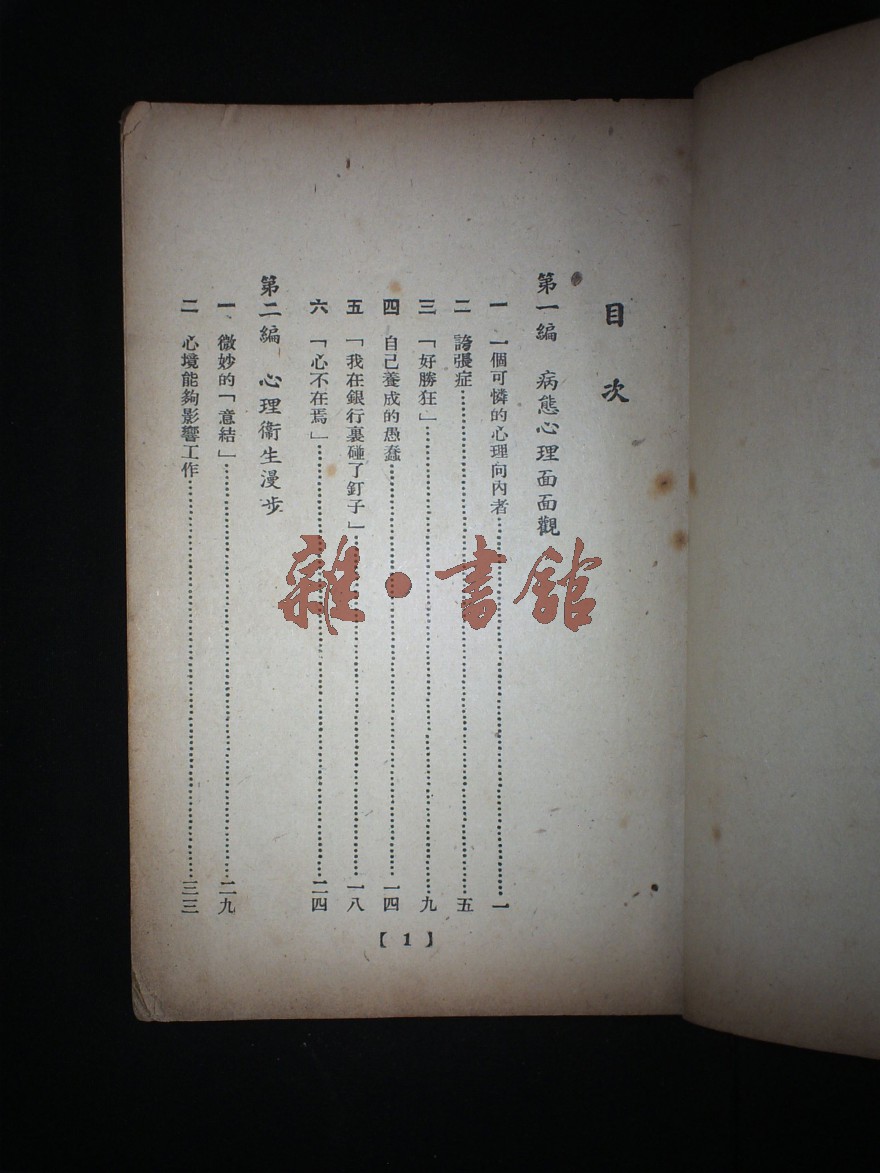 目次
第一編 病態心理面面觀
一 一個可憐的心理向內者……一
二 誇張症……五
三 「好勝狂」……九
四 自己養成的愚蠢……一四
五 「我在銀行裏碰了釘子」……一八
六 「心不在焉」……二四
第二編 心理衞生漫步
一 微妙的「意結」……二九
二 心境能夠影響工作……三三
【1】
雜·書館